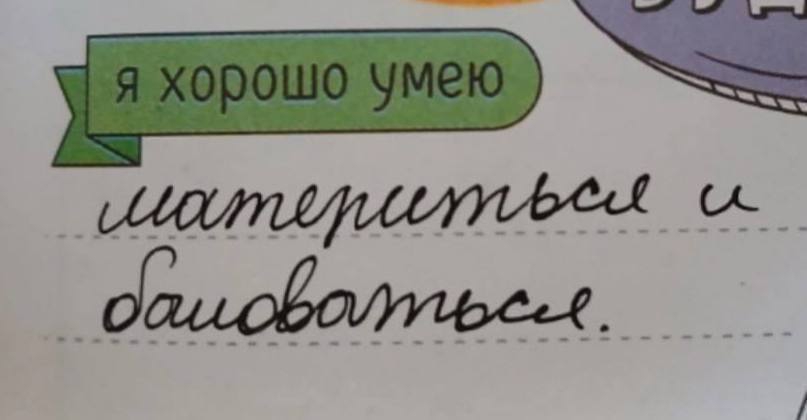 я хорошо умею
материться и
баловаться.